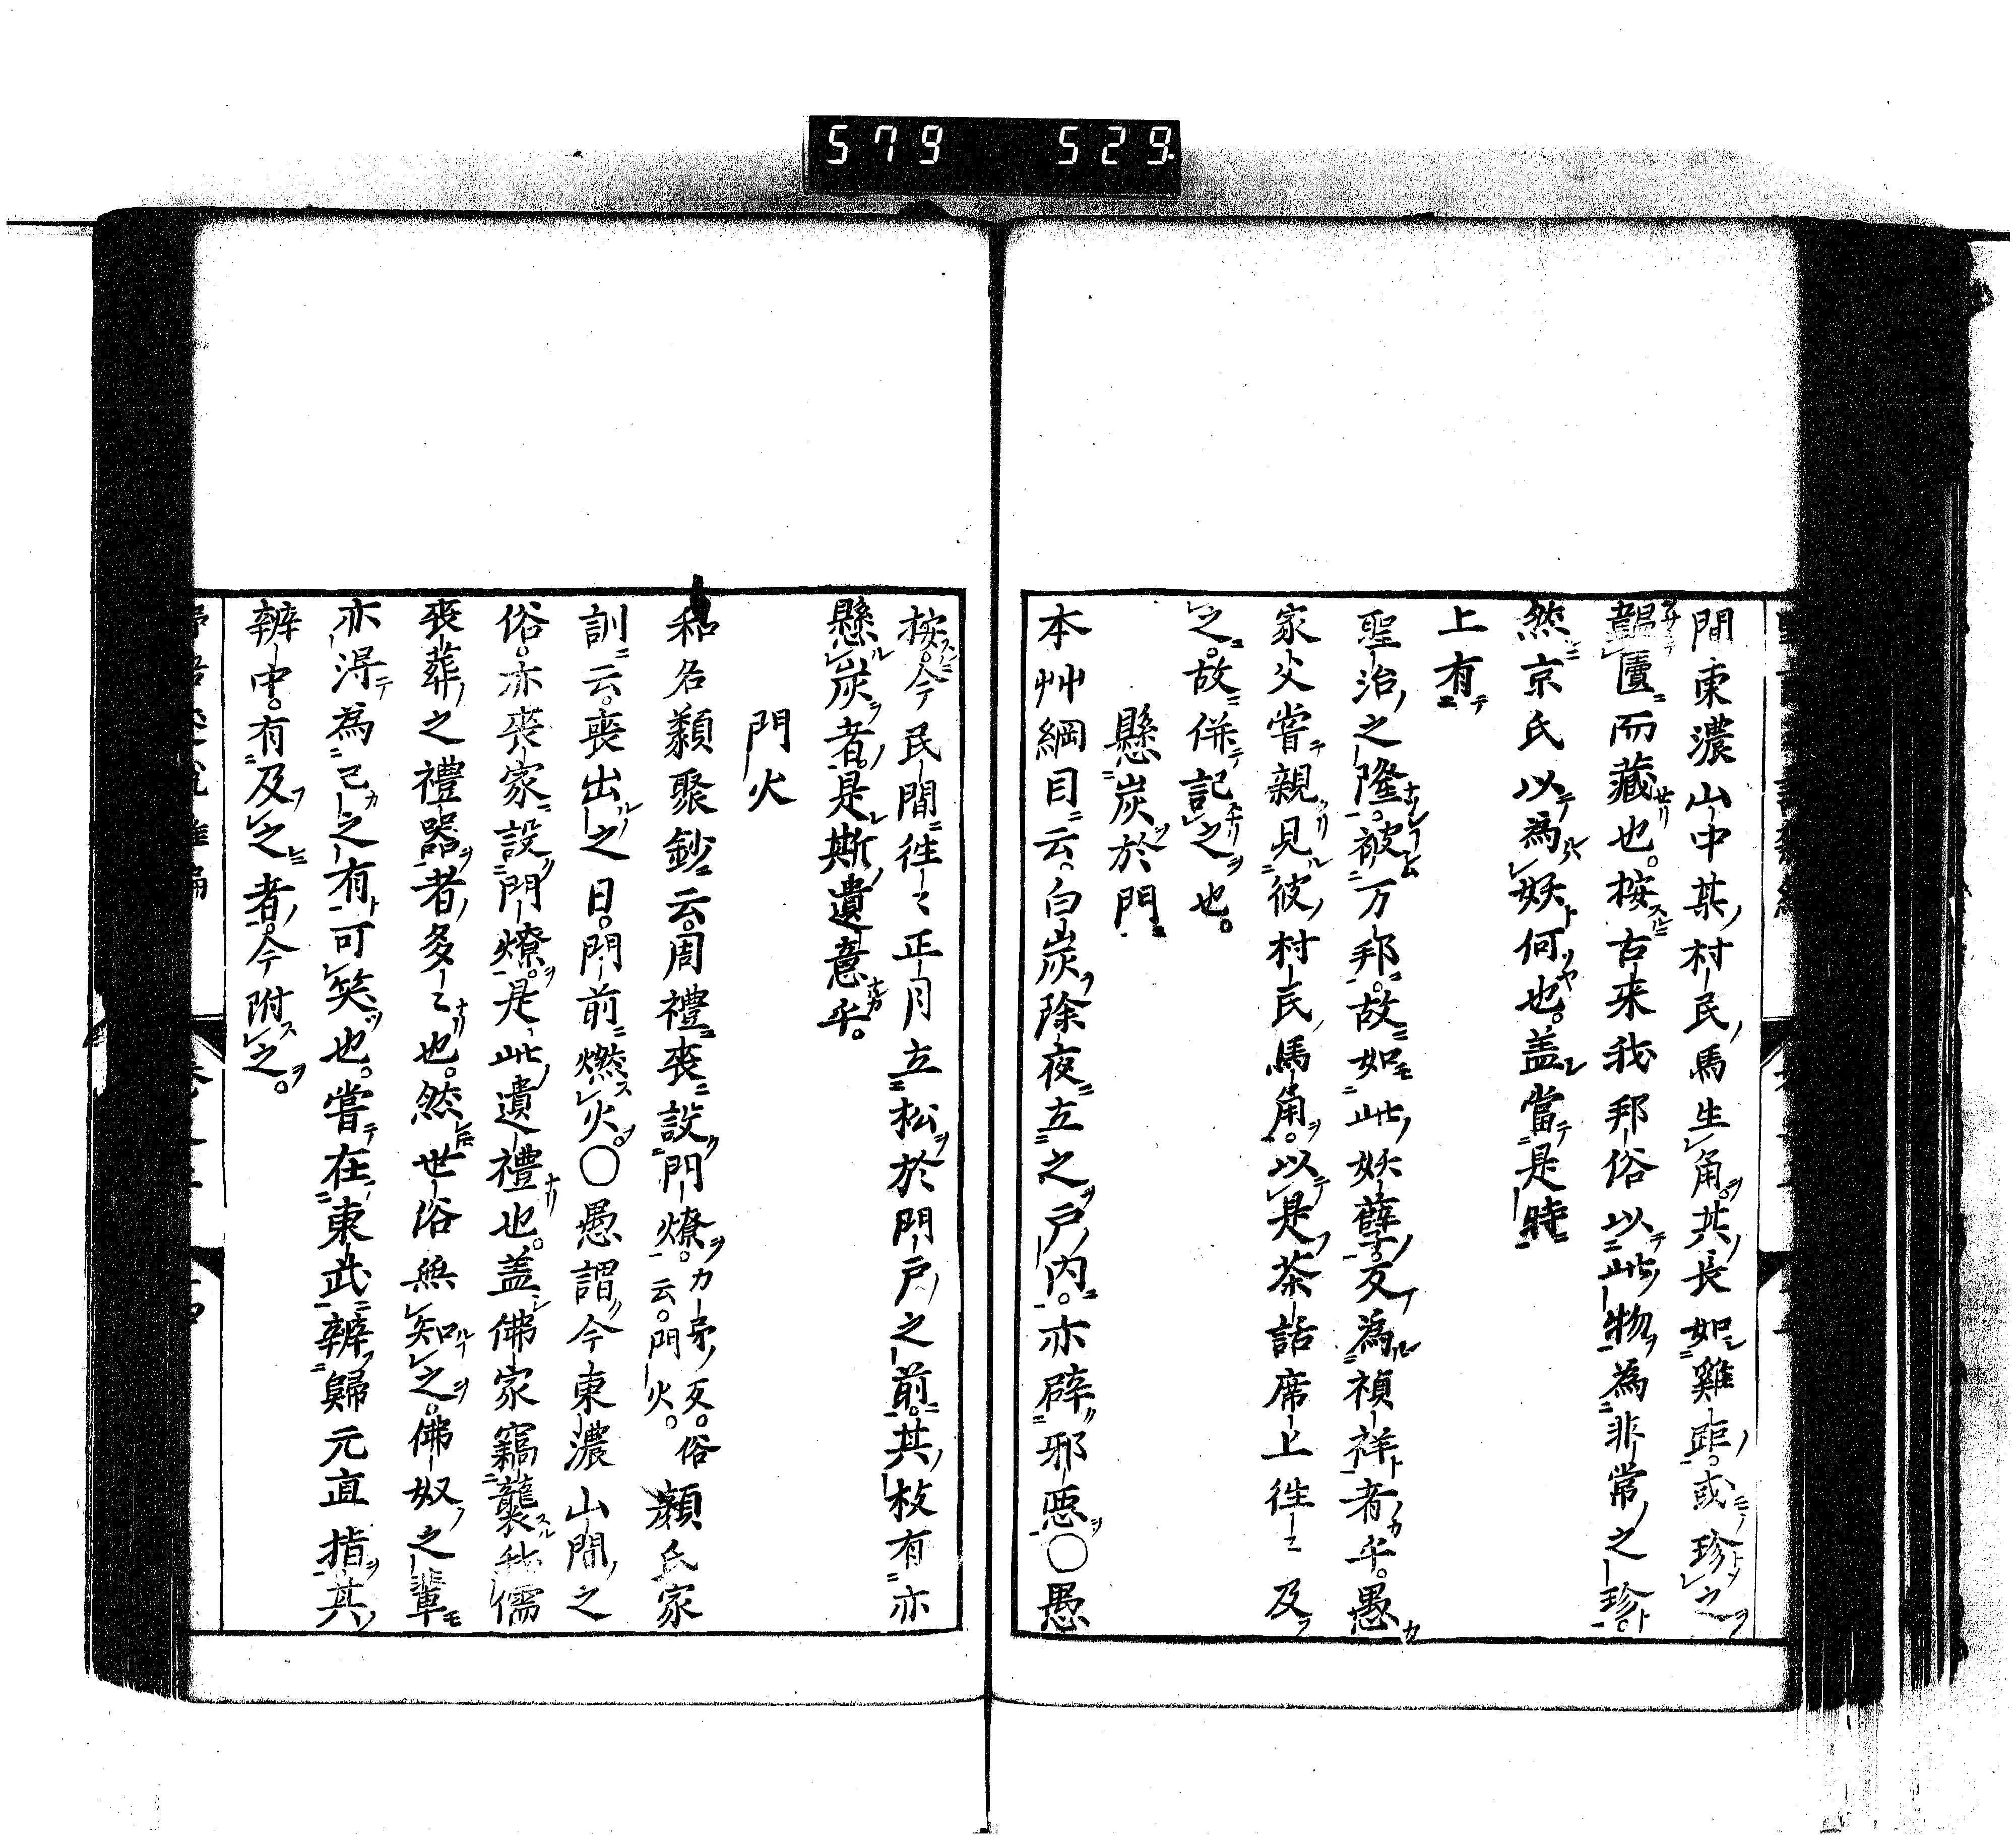 579 529
間東濃山中某村民馬生角其長如雞距或珍之
韞匵而藏也。按古来我邦俗以此物為非常之珍。
然京氏以為妖何也。盖當是時
上有
聖治之隆。被万邦。故如此妖孽。反為禎祥者乎。愚
家父嘗親見彼村民馬角。以是茶話席上往々及
之。故併記之也。
懸炭於門
本艸綱目云。白炭除夜立之戸内。亦辟邪惡〇愚
按。今民間往々正月立松於門戸之前。其枝有亦
懸炭者。是斯遺意乎。
門火
和名類聚鈔云。周禮喪設門燎。力弔反。俗云。門火。顔氏家
訓云。喪出之日。門前燃火。〇愚謂今東濃山間之
俗。亦喪家設門燎。是此遺禮也。盖佛家竊襲我儒
喪葬之禮器者多々也。然世俗無知之。佛奴之輩
亦得為己之有可笑也。嘗在東武辨歸元直指其
辨中。有及之者。今附之。